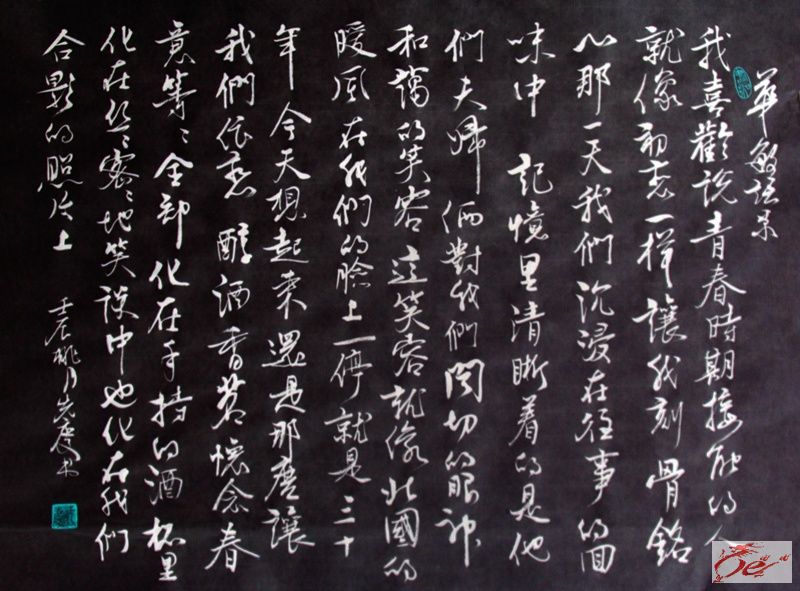 華敏語录
我喜歡說青春時期接触的人
就像初恋一樣讓我刻骨銘
心那一天我們沉浸在往事的回
味中 記憶里清晰着的是他
們夫婦俩對我們関切的眼神
和藹的笑容這笑容就像北國的
暖風在我們的臉上一停就是三十
年 今天想起来還是那麽讓
我們依恋 醇酒香茗懷念春
意等等全部化在手持的酒杯里
化在丝丝密密地笑談中也化在我們
合影的照片上
壬辰桃月先慶书